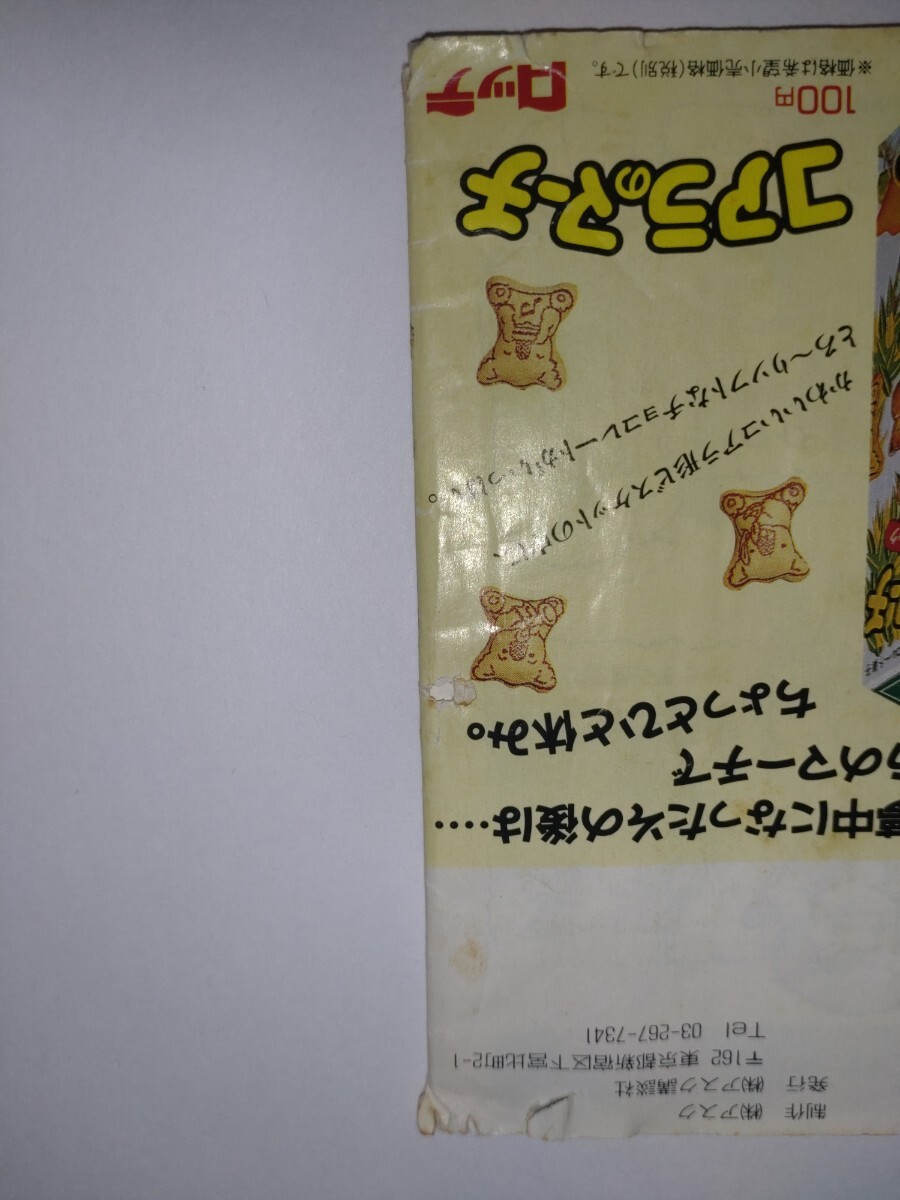 制作 ㈱アスク
発行 ㈱アスク講談社
〒162 東京都新宿区下宮比町2-1
Tel 03-267-7341
夢中になったその後は‥‥
のマーチで
ちょっとひと休み。
かわいいコアラ形ビスケットの中に、
とろ～りソフトなチョコレートがいっぱい。
コアラのマーチ
100円
ロッテ
※価格は希望小売価格(税別)です。